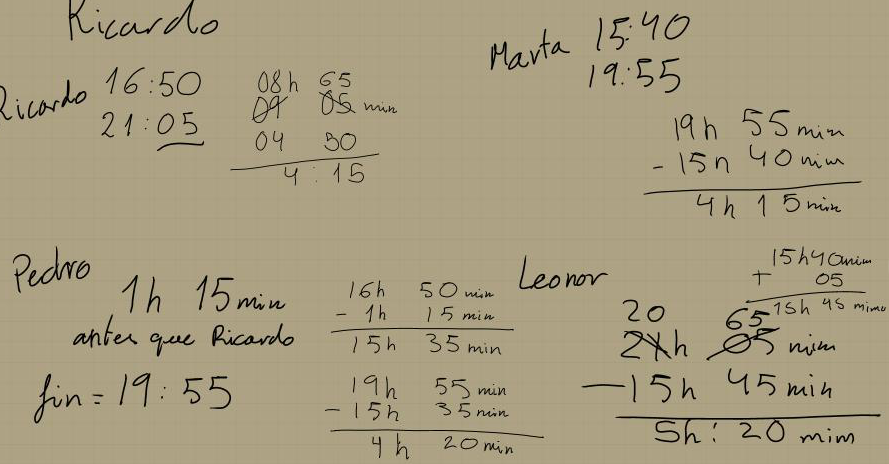 Ricardo
Ricardo 16:50
21:05
08h 65
09 05 min
04 50
4:15
Marta 15:40
19:55
19h 55 min
- 15h 40 min
4h 15 min
Pedro
1h 15 min
antes que Ricardo
fin = 19:55
16h 50 min
- 1h 15 min
15h 35 min
19h 55 min
- 15h 35 min
4h 20 min
Leonor
15h40min
+ 05
15h 45 mim
20 65
21h 05 mim
- 15h 45 min
5h: 20 mim